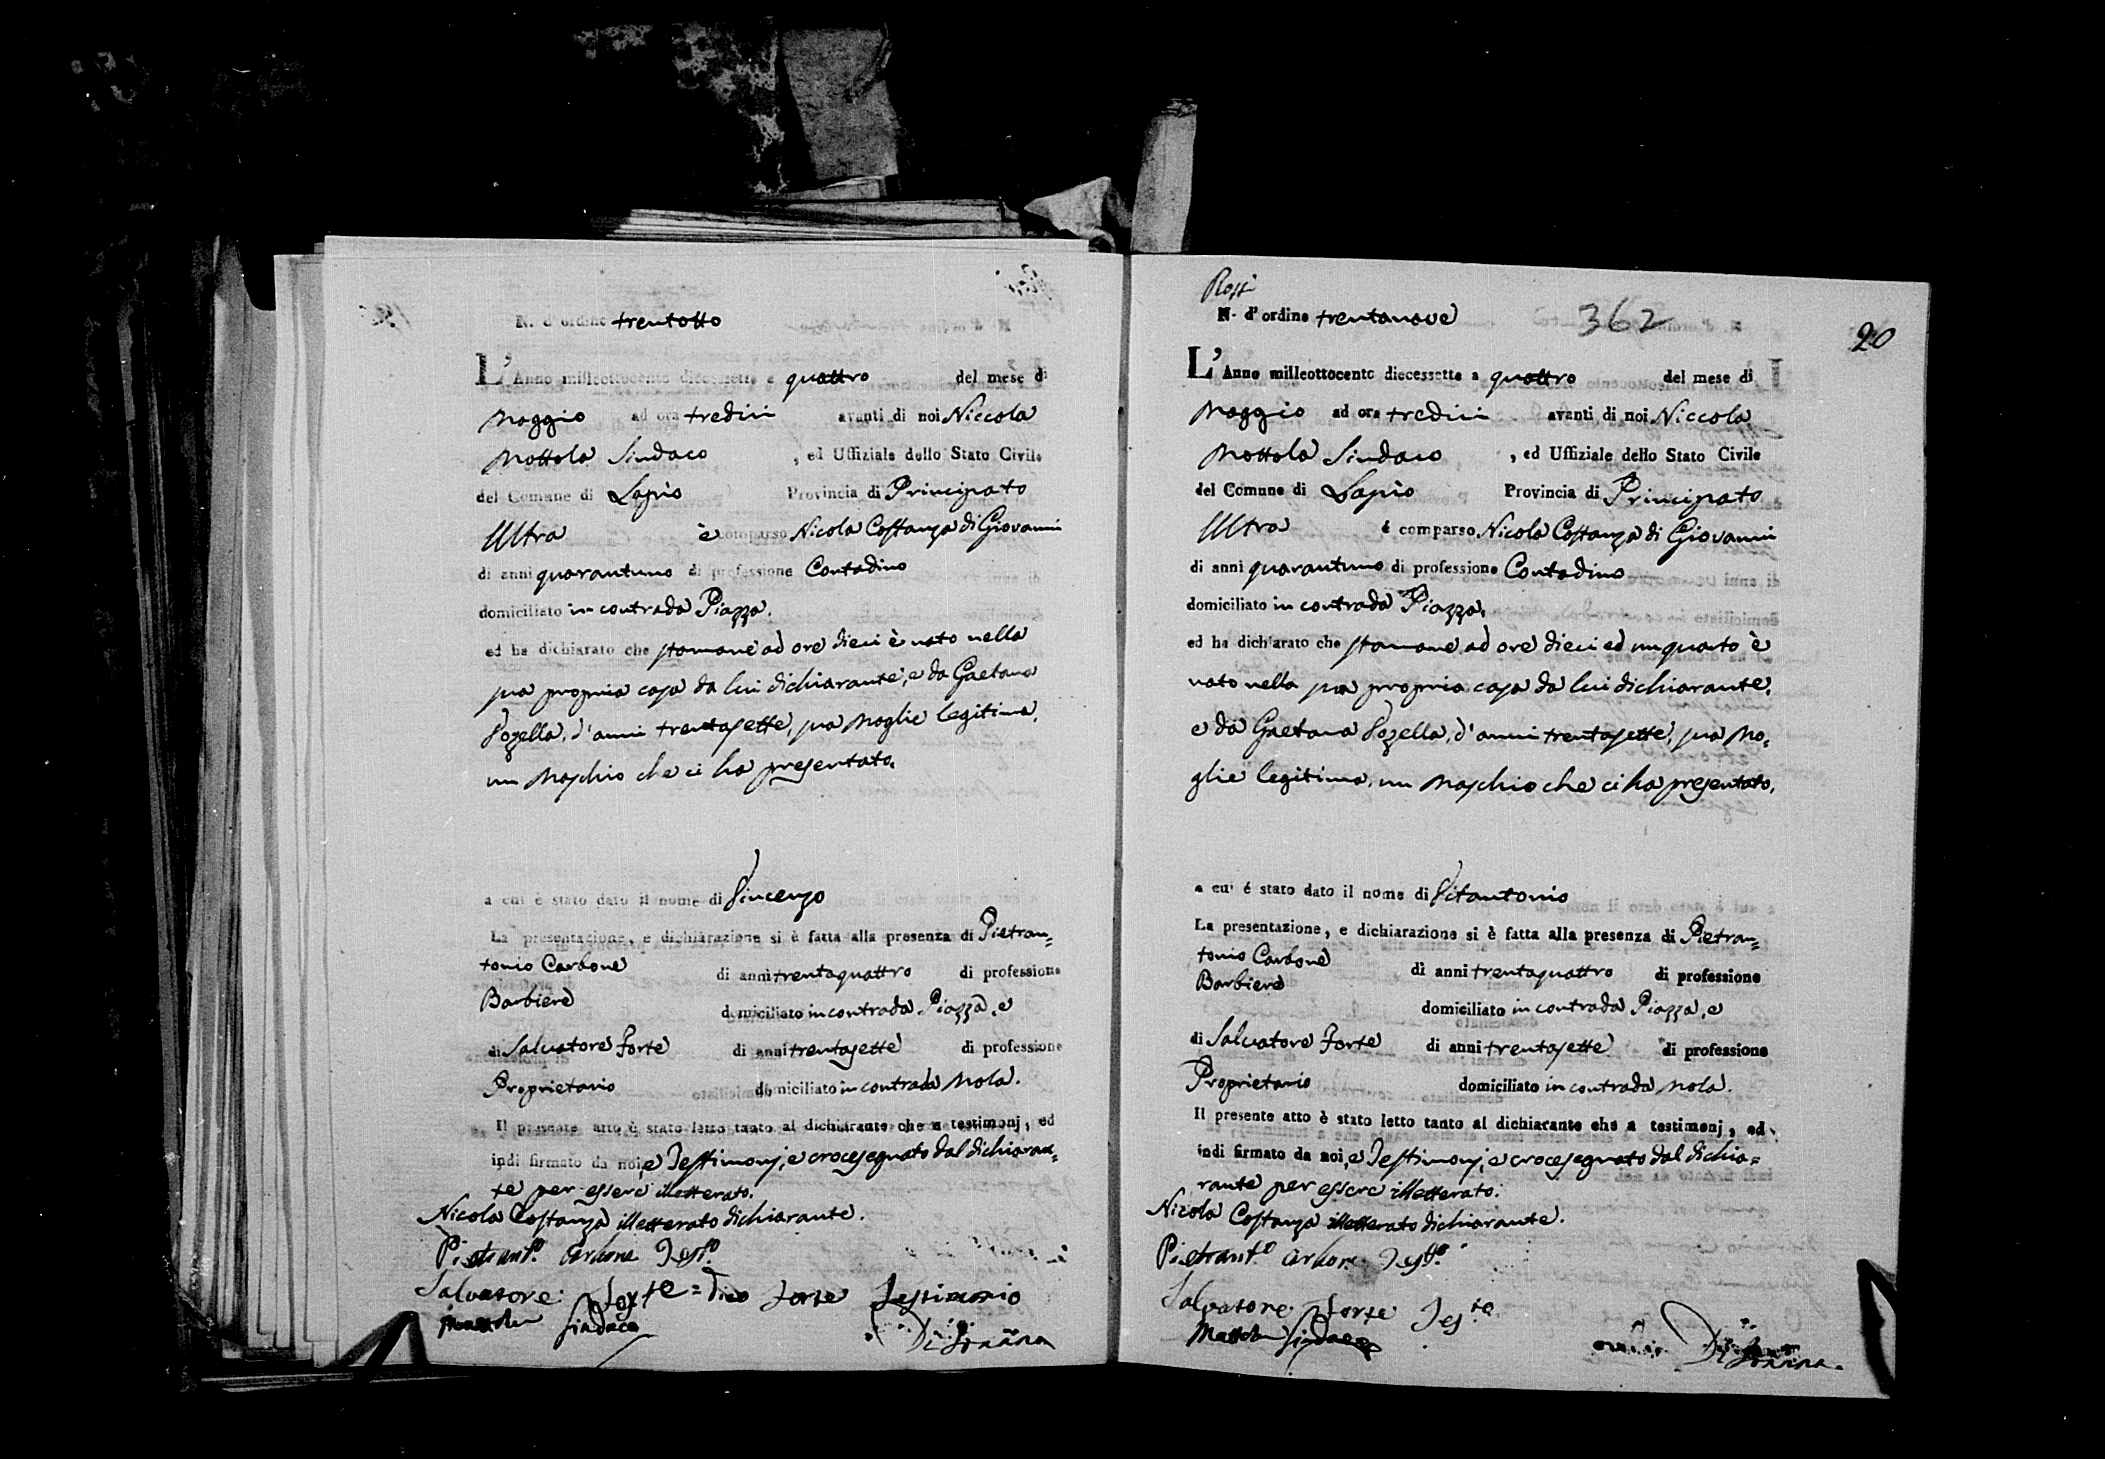 N. d'ordine trentotto
L'Anno milleottocento diecessette a quattro del mese di
Maggio ad ora tredici avanti di noi Niccola
Mottola Sindaco , ed Uffiziale dello Stato Civile
del Comune di Lapio Provincia di Principato
Ultra è comparso Nicola Costanza di Giovanni
di anni quarantuno di professione Contadino
domiciliato in contrada Piazza.
ed ha dichiarato che stamane ad ore dieci è nato nella
sua propria casa da lui dichiarante, e da Gaetana
d'anni trentasette, sua Moglie legitima,
un Maschio che ci ha presentato.
a cui è stato dato il nome di Vincenzo
La presentazione, e dichiarazione si è fatta alla presenza di Pietran=
tonio Carbone di anni trentaquattro di professione
Barbiere domiciliato in contrada Piazza, e
di Salvatore Forte di anni trentasette di professione
Proprietario domiciliato in contrada Mola.
Il presente atto è stato letto tanto al dichiarante che a testimonj, ed
indi firmato da noi, e Testimonj, e crocesegnato dal dichiaran=
te per essere illetterato.
Nicola Costanza illetterato dichiarante.
Pietrant.o Carbone Test.o
Salvatore Forte = Dico Forte Testimonio
Mottola Sindaco
Rossi
N. d'ordine trentanove
362
20
L'Anno milleottocento diecessette a quattro del mese di
Maggio ad ora tredici avanti di noi Niccola
Mottola Sindaco , ed Uffiziale dello Stato Civile
del Comune di Lapio Provincia di Principato
Ultra é comparso Nicola Costanza di Giovanni
di anni quarantuno di professione Contadino
domiciliato in contrada Piazza.
ed ha dichiarato che stamane ad ore dieci ed un quarto è
nato nella sua propria casa da lui dichiarante,
e da Gaetana d'anni trentasette, sua Mo=
glie legitima, un Maschio che ci ha presentato.
a cui é stato dato il nome di Vitantonio
La presentazione, e dichiarazione si è fatta alla presenza di Pietran=
tonio Carbone di anni trentaquattro di professione
Barbiere domiciliato in contrada Piazza, e
di Salvatore Forte di anni trentasette di professione
Proprietario domiciliato in contrada Mola.
Il presente atto è stato letto tanto al dichiarante che a testimonj, ed
indi firmato da noi, e Testimonj, e crocesegnato dal dichia=
rante per essere illetterato.
Nicola Costanza illetterato dichiarante.
Pietrant.o Carbone Test.o
Salvatore Forte Tes.te
Mottola Sindaco